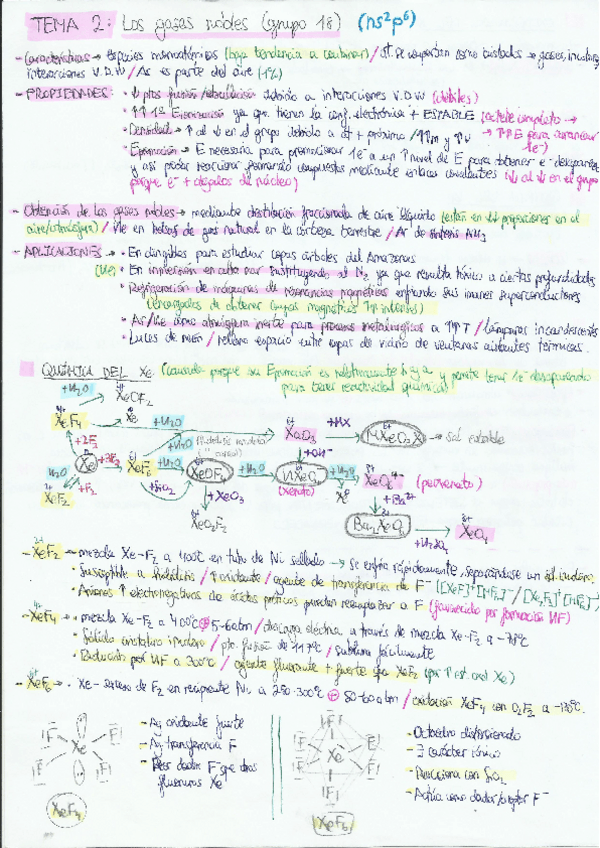 TEMA 2: Los gases nobles (grupo 18) (ns²p⁶)
- Características → especies monoatómicas (baja tendencia a / st. se comportan como → gases,
interacciones V.D.W / Ar es parte del aire (1%)
- PROPIEDADES: · ↓ ptos fusión/ebullición debido a interacciones V.D.W (débiles)
· ↑↑ 1ª E ionización ya que tienen la conf. electrónica + ESTABLE (octete completo →
· Densidad → ↑ al ↓ en el grupo debido a → ↑↑E para arrancar
e⁻)
· E promoción → E necesaria para promocionar 1e⁻ a un ↑ nivel de E para obtener e⁻ desapareado
y así poder reaccionar formando compuestos mediante enlaces covalentes (↓ al ↓ en el grupo
porque e⁻ + alejados del núcleo)
- Obtención de los gases nobles → mediante destilación fraccionada de aire líquido (están en ↓↓ proporciones en el
aire/atmósfera) / He en bolsas de gas natural en la corteza terrestre / Ar de síntesis NH₃
- APLICACIONES → · En dirigibles para estudiar copas árboles del Amazonas
(He) · En inmersión en alta mar sustituyendo al N₂ ya que resulta tóxico a ciertas profundidades
· Refrigeración de máquinas de resonancias magnéticas enfriando sus imanes superconductores
(encargados de obtener campos magnéticos ↑↑ intensos)
· Ar/He como atmósfera inerte para procesos metalúrgicos a ↑↑T / Lámparas incandescentes
· Luces de neón / relleno espacio entre capas de vidrio de ventanas aislantes térmicas.
QUÍMICA DEL Xe: (causado porque su E promoción es relativamente baja y permite tener 1e⁻ desapareado
para tener reactividad química)
+H₂O
XeOF₂
XeF₄ +H₂O Xe +H₂O
XeO₃ +MX MXeO₃X → Sal estable
+2F₂ +OH⁻
Xe +3F₂ XeF₆ +H₂O XeOF₄ +H₂O HXeO₄⁻ +H₂O XeO₆⁴⁻ (perxenato)
H₂O +F₂ +SiO₂ (xenato) Xe
XeF₂ +XeO₃ +Ba²⁺
XeO₂F₂ Ba₂XeO₆ → XeO₄
+H₂SO₄
- XeF₂ → mezcla Xe-F₂ a 400ºC en tubo de Ni sellado → se enfría rápidamente, separándose un sól. incoloro.
· Susceptible a hidrólisis / ↑ oxidante / agente de transferencia de F⁻
· Aniones ↑ electronegativos de ácidos próticos pueden reemplazar a F (favorecido por formación HF)
- XeF₄ → · mezcla Xe-F₂ a 400ºC 5-6 atm / descarga eléctrica a través de mezcla Xe-F₂ a -78ºC
· Sólido cristalino incoloro / pto. fusión de 117ºC / sublima fácilmente
· Reducido por HF a 300ºC / agente fluorante + fuerte q XeF₂ (por ↑ est. oxd Xe)
- XeF₆ → · Xe - exceso de F₂ en recipiente Ni a 250-300ºC + 50-60 atm / oxidación XeF₄ con O₂F₂ a -130ºC.
F F
Xe
F F
XeF₄
- Ag oxidante fuerte
- Ag transferencia F
- Peor dador F que otros
fluoruros Xe
F
F F
Xe
F F
F
XeF₆
- Octaedro distorsionado
- ∃ carácter iónico
- Reacciona con SiO₂
- Actúa como dador/aceptor F⁻